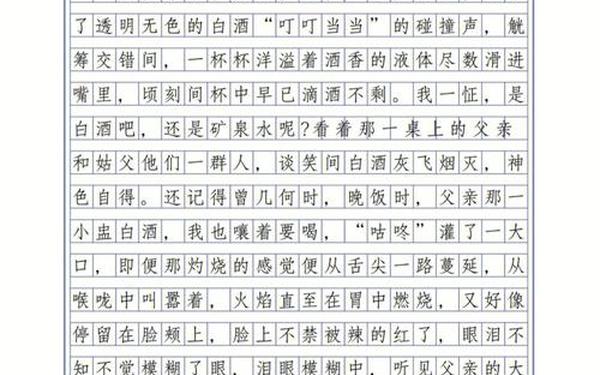 了透明无色的白酒“叮叮当当”的碰撞声，觥
筹交错间，一杯杯洋溢着酒香的液体尽数滑进
嘴里，顷刻间杯中早已滴酒不剩。我一怔，是
白酒吧，还是矿泉水呢?看着那一桌上的父亲
和姑父他们一群人，谈笑间白酒灰飞烟灭，神
色自得。还记得曾几何时，晚饭时，父亲那一
小盅白酒，我也嚷着要喝，“咕咚”灌了一大
口，即便那灼烧的感觉便从舌尖一路蔓延，从
喉咙中叫嚣着，火焰直至在胃中燃烧，又好像
停留在脸颊上，脸上不禁被辣的红了，眼泪不
知不觉模糊了眼，泪眼模糊中，听见父亲的大